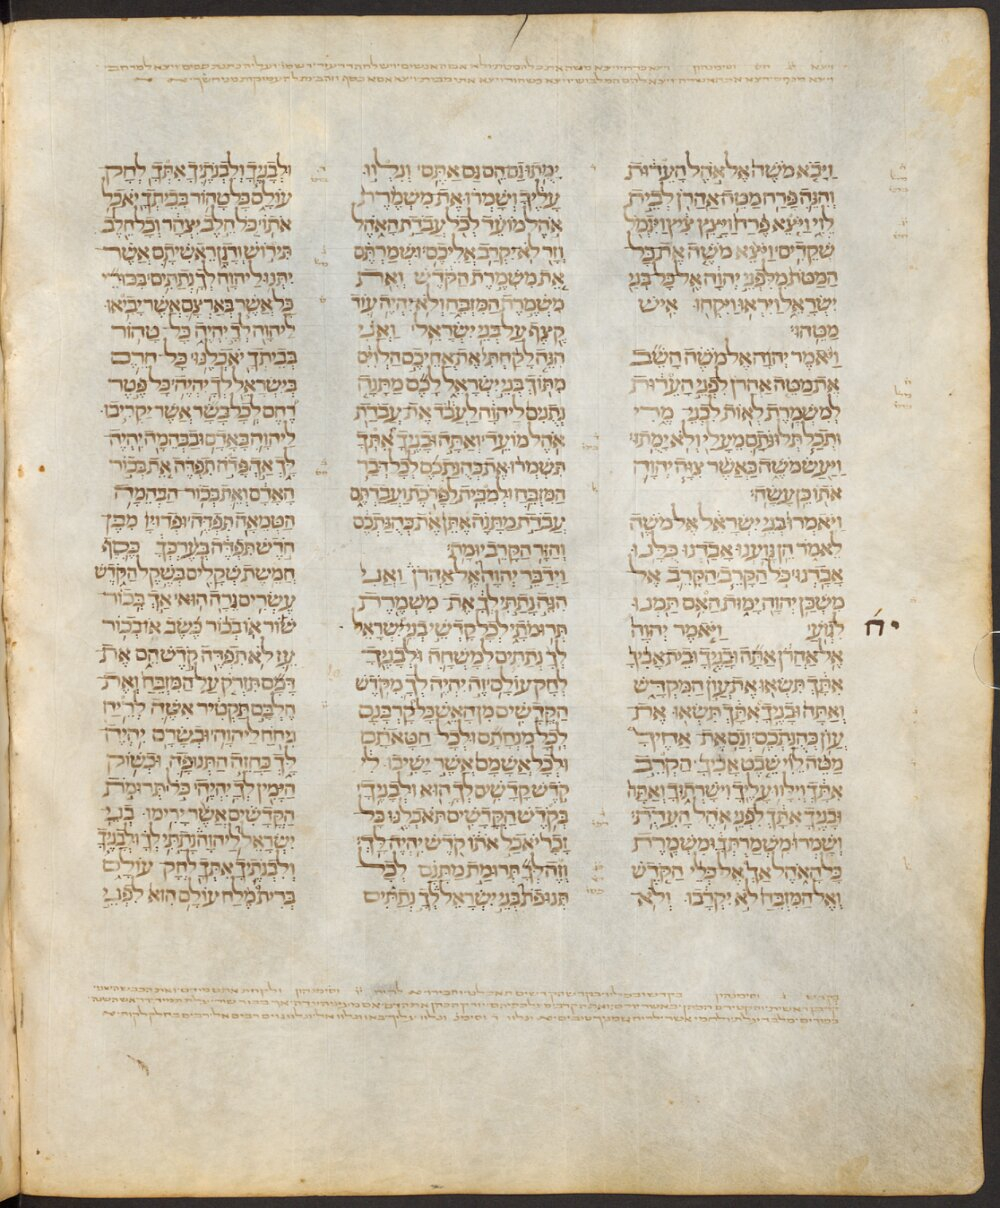 ויבא משה אל אהל העדות
והנה פרח מטה אהרן לבית
לוי ויצא פרח ויצץ ציץ ויגמל
שקדים׃ ויצא משה את כל
המטת מלפני יהוה אל כל בני
ישראל ויראו ויקחו איש
מטהו׃
ויאמר יהוה אל משה השב
את מטה אהרן לפני העדות
למשמרת לאות לבני מרי
ותכל תלונתם מעלי ולא ימתו׃
ויעש משה כאשר צוה יהוה
אתו כן עשה׃
ויאמרו בני ישראל אל משה
לאמר הן גוענו אבדנו כלנו
אבדנו׃ כל הקרב הקרב אל
משכן יהוה ימות האם תמנו
לגוע׃ ויאמר יהוה
יח
אל אהרן אתה ובניך ובית אביך
אתך תשאו את עון המקדש
ואתה ובניך אתך תשאו את
עון כהנתכם׃ וגם את אחיך
מטה לוי שבט אביך הקרב
אתך וילוו עליך וישרתוך ואתה
ובניך אתך לפני אהל העדת׃
ושמרו משמרתך ומשמרת
כל האהל אך אל כלי הקדש
ואל המזבח לא יקרבו ולא
ימתו גם הם גם אתם׃ ונלוו
עליך ושמרו את משמרת
אהל מועד לכל עבדת האהל
וזר לא יקרב אליכם׃ ושמרתם
את משמרת הקדש ואת
משמרת המזבח ולא יהיה עוד
קצף על בני ישראל׃ ואני
הנה לקחתי את אחיכם הלוים
מתוך בני ישראל לכם מתנה
נתנים ליהוה לעבד את עבדת
אהל מועד׃ ואתה ובניך אתך
תשמרו את כהנתכם לכל דבר
המזבח ולמבית לפרכת ועבדתם
עבדת מתנה אתן את כהנתכם
והזר הקרב יומת׃
וידבר יהוה אל אהרן ואני
הנה נתתי לך את משמרת
תרומתי לכל קדשי בני ישראל
לך נתתים למשחה ולבניך
לחק עולם׃ זה יהיה לך מקדש
הקדשים מן האש כל קרבנם
לכל מנחתם ולכל חטאתם
ולכל אשמם אשר ישיבו לי
קדש קדשים לך הוא ולבניך׃
בקדש הקדשים תאכלנו כל
זכר יאכל אתו קדש יהיה לך׃
וזה לך תרומת מתנם לכל
תנופת בני ישראל לך נתתים
ולבניך ולבנתיך אתך לחק
עולם כל טהור בביתך יאכל
אתו׃ כל חלב יצהר וכל חלב
תירוש ודגן ראשיתם אשר
יתנו ליהוה לך נתתים׃ בכורי
כל אשר בארצם אשר יביאו
ליהוה לך יהיה כל טהור
בביתך יאכלנו׃ כל חרם
בישראל לך יהיה׃ כל פטר
רחם לכל בשר אשר יקריבו
ליהוה באדם ובבהמה יהיה
לך אך פדה תפדה את בכור
האדם ואת בכור הבהמה
הטמאה תפדה׃ ופדויו מבן
חדש תפדה בערכך כסף
חמשת שקלים בשקל הקדש
עשרים גרה הוא׃ אך בכור
שור או בכור כשב או בכור
עז לא תפדה קדש הם את
דמם תזרק על המזבח ואת
חלבם תקטיר אשה לריח
ניחח ליהוה׃ ובשרם יהיה
לך כחזה התנופה וכשוק
הימין לך יהיה׃ כל תרומת
הקדשים אשר ירימו בני
ישראל ליהוה נתתי לך ולבניך
ולבנתיך אתך לחק עולם
ברית מלח עולם הוא לפני